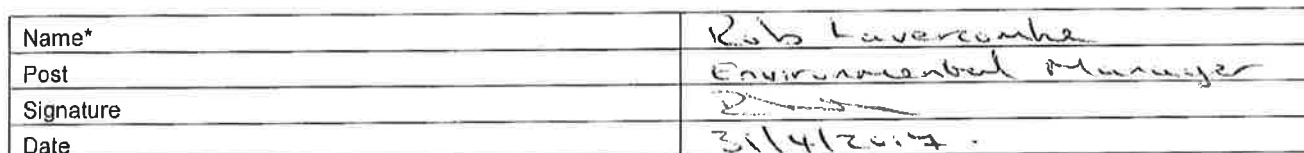 Name* Rob Lavercombe
Post Environmental Manager
Signature
Date 31/4/2017.